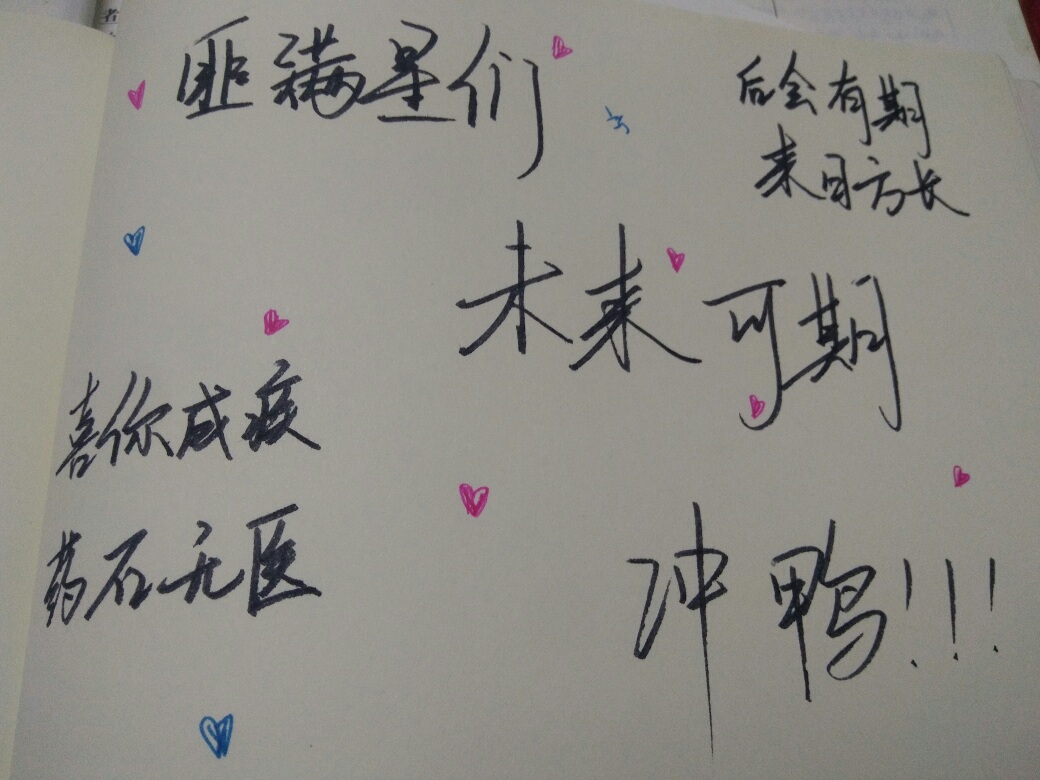 匪满星们
后会有期
来日方长
未来可期
喜你成疾
药石无医
冲鸭!!!
者